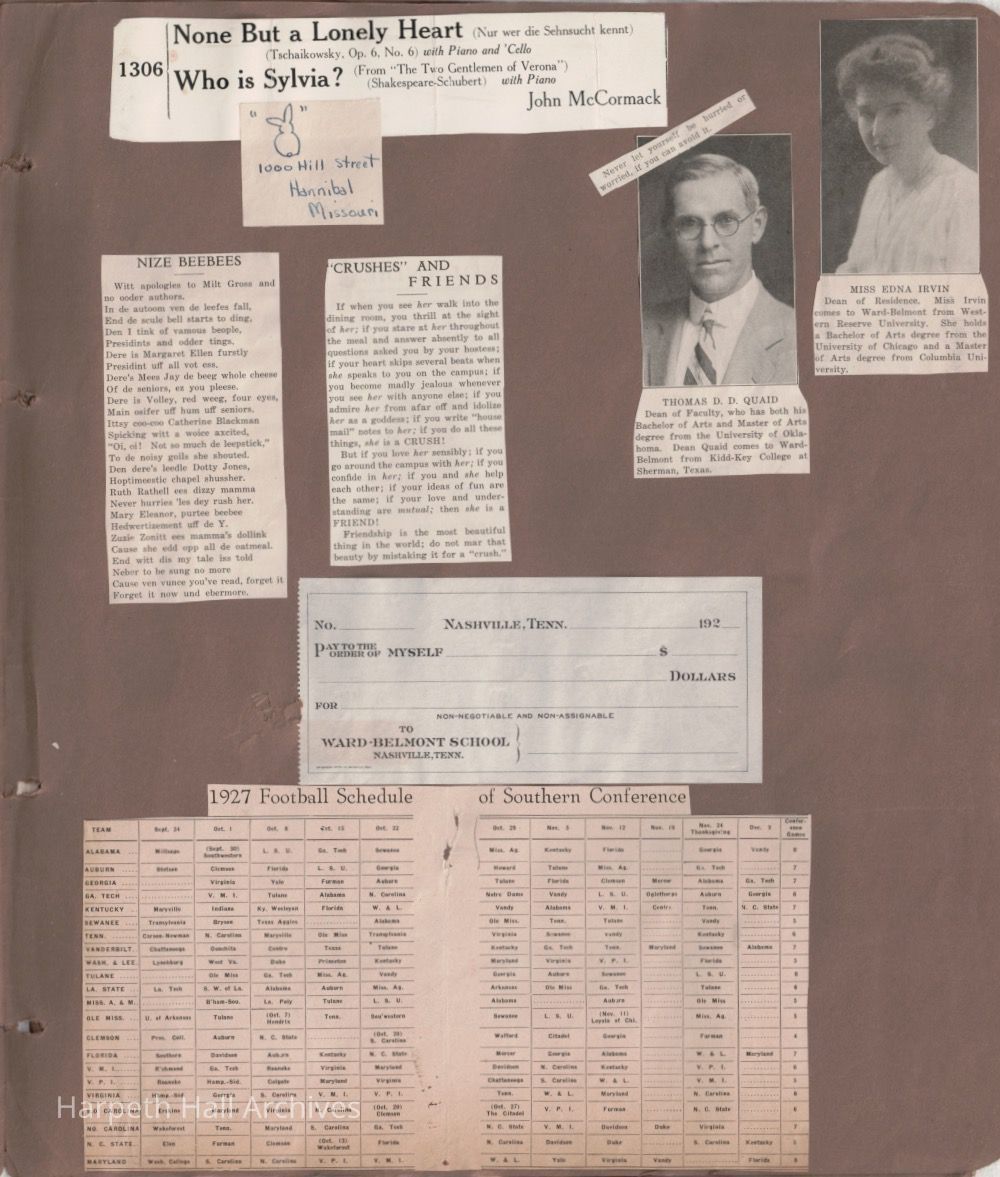 1306
None But a Lonely Heart (Nur wer die Sehnsucht kennt)
(Tschaikowsky, Op. 6, No. 6) with Piano and 'Cello
Who is Sylvia? (From "The Two Gentlemen of Verona")
(Shakespeare-Schubert) with Piano
John McCormack
" "
1000 Hill Street
Hannibal
Missouri
Never let yourself be hurried or
worried, if you can avoid it.
MISS EDNA IRVIN
Dean of Residence. Miss Irvin
comes to Ward-Belmont from West-
ern Reserve University. She holds
a Bachelor of Arts degree from the
University of Chicago and a Master
of Arts degree from Columbia Uni-
versity.
THOMAS D. D. QUAID
Dean of Faculty, who has both his
Bachelor of Arts and Master of Arts
degree from the University of Okla-
homa. Dean Quaid comes to Ward-
Belmont from Kidd-Key College at
Sherman, Texas.
NIZE BEEBEES
Witt apologies to Milt Gross and
no ooder authors.
In de autoom ven de leefes fall,
End de scule bell starts to ding,
Den I tink of vamous beople,
Presidints and odder tings.
Dere is Margaret Ellen furstly
Presidint uff all vot ess.
Dere's Mees Jay de beeg whole cheese
Of de seniors, ez you pleese.
Dere is Volley, red weeg, four eyes,
Main osifer uff hum uff seniors.
Ittsy coo-coo Catherine Blackman
Spicking witt a woice axcited,
"Oi, oi! Not so much de leepstick,"
To de noisy goils she shouted.
Den dere's leedle Dotty Jones,
Hoptimeestic chapel shussher.
Ruth Rathell ees dizzy mamma
Never hurries 'les dey rush her.
Mary Eleanor, purtee beebee
Hedwertizement uff de Y.
Zuzie Zonitt ees mamma's dollink
Cause she edd opp all de oatmeal.
End witt dis my tale iss told
Neber to be sung no more
Cause ven vunce you've read, forget it
Forget it now und ebermore.
"CRUSHES" AND
FRIENDS
If when you see her walk into the
dining room, you thrill at the sight
of her; if you stare at her throughout
the meal and answer absently to all
questions asked you by your hostess;
if your heart skips several beats when
she speaks to you on the campus; if
you become madly jealous whenever
you see her with anyone else; if you
admire her from afar off and idolize
her as a goddess; if you write "house
mail" notes to her; if you do all these
things, she is a CRUSH!
But if you love her sensibly; if you
go around the campus with her; if you
confide in her; if you and she help
each other; if your ideas of fun are
the same; if your love and under-
standing are mutual; then she is a
FRIEND!
Friendship is the most beautiful
thing in the world; do not mar that
beauty by mistaking it for a "crush."
No. NASHVILLE, TENN. 192
PAY TO THE ORDER OF MYSELF $
DOLLARS
FOR
NON-NEGOTIABLE AND NON-ASSIGNABLE
TO
WARD-BELMONT SCHOOL
NASHVILLE, TENN.
1927 Football Schedule of Southern Conference
TEAM Sept. 24 Oct. 1 Oct. 8 Oct. 15 Oct. 22 Oct. 29 Nov. 5 Nov. 12 Nov. 19 Nov. 24 Thanksgiving Dec. 3 Confer-ence Games
ALABAMA Millsaps (Sept. 30) Southwestern L. S. U. Ga. Tech Sewanee Miss. Ag. Kentucky Florida Georgia Vandy 8
AUBURN Stetson Clemson Florida L. S. U. Georgia Howard Tulane Miss. Ag. Ga. Tech 7
GEORGIA Virginia Yale Furman Auburn Tulane Florida Clemson Mercer Alabama Ga. Tech 7
GA. TECH V. M. I. Tulane Alabama N. Carolina Notre Dame Vandy L. S. U. Oglethorpe Auburn Georgia 8
KENTUCKY Maryville Indiana Ky. Wesleyan Florida W. & L. Vandy Alabama V. M. I. Centre Tenn. N. C. State 7
SEWANEE Transylvania Bryson Texas Aggies Alabama Ole Miss. Tenn. Tulane Vandy 5
TENN. Carson-Newman N. Carolina Maryville Ole Miss Transylvania Virginia Sewanee vandy Kentucky 6
VANDERBILT Chattanooga Ouachita Centre Texas Tulane Kentucky Ga. Tech Tenn. Maryland Sewanee Alabama 7
WASH. & LEE Lynchburg West Va. Duke Princeton Kentucky Maryland Virginia V. P. I. Florida 5
TULANE Ole Miss Ga. Tech Miss. Ag. Vandy Georgia Auburn Sewanee L. S. U. 8
LA. STATE La. Tech S. W. of La. Alabama Auburn Miss. Ag. Arkansas Ole Miss Ga. Tech Tulane 6
MISS. A. & M. B'ham-Sou. La. Poly Tulane L. S. U. Alabama Auburn Ole Miss 5
OLE MISS. U. of Arkansas Tulane (Oct. 7) Hendrix Tenn. Sou'western Sewanee L. S. U. (Nov. 11) Loyola of Chi. Miss. Ag. 5
CLEMSON Pres. Coll. Auburn N. C. State (Oct. 20) S. Carolina Wofford Citadel Georgia Furman 4
FLORIDA Southern Davidson Auburn Kentucky N. C. State Mercer Georgia Alabama W. & L. Maryland 7
V. M. I. Richmond Ga. Tech Roanoke Virginia Maryland Davidson N. Carolina Kentucky V. P. I. 6
V. P. I. Roanoke Hamp.-Sid. Colgate Maryland Virginia Chattanooga S. Carolina W. & L. V. M. I. 5
VIRGINIA Hamp.-Sid Georgia S. Carolina V. M. I. V. P. I. Tenn. W. & L. Maryland N. Carolina 8
SO. CAROLINA Erskine Maryland Virginia N. Carolina (Oct. 20) Clemson (Oct. 27) The Citadel V. P. I. Furman N. C. State 6
NO. CAROLINA Wakeforest Tenn. Maryland S. Carolina Ga. Tech N. C. State V. M. I. Davidson Duke Virginia 7
N. C. STATE Elon Furman Clemson (Oct. 13) Wakeforest Florida N. Carolina Davidson Duke S. Carolina Kentucky
MARYLAND Wash. College S. Carolina N. Carolina V. P. I. V. M. I. W. & L. Yale Virginia Vandy Florida 8
Harpeth Hall Archives